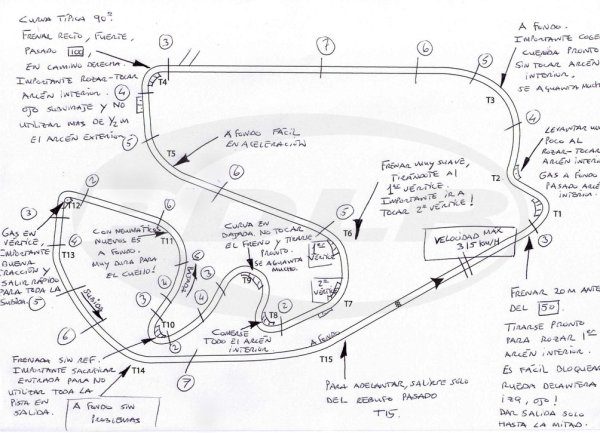 CURVA TÍPICA 90°.
FRENAR RECTO, FUERTE,
PASADO 100,
EN CAMINO DERECHA.
IMPORTANTE ROZAR-TOCAR
ARCÉN INTERIOR.
OJO SUBVIRAJE Y NO
UTILIZAR MAS DE 1/2 M
EL ARCÉN EXTERIOR
3
T4
4
5
T5
7
6
5
T3
A FONDO.
IMPORTANTE COGER
CUERDA PRONTO
SIN TOCAR ARCÉN
INTERIOR,
SE AGUANTA MUCHO
4
LEVANTAR MUY
POCO AL
ROZAR-TOCAR
ARCÉN INTERIOR
GAS A FONDO
PASADO ARCÉN
INTERIOR.
T2
T1
3
A FONDO FÁCIL
EN ACELERACIÓN
6
FRENAR MUY SUAVE,
TIRÁNDOTE AL
1er VÉRTICE.
IMPORTANTE IR A
TOCAR 2º VÉRTICE!
5
T6
1er
VÉRTICE
2º
VÉRTICE
T7
VELOCIDAD MAX
315 KM/H
FRENAR 20M ANTES
DEL 50.
TIRARSE PRONTO
PARA ROZAR 1er
ARCÉN INTERIOR.
ES FÁCIL BLOQUEAR
RUEDA DELANTERA
IZQ, OJO!
DAR SALIDA SOLO
HASTA LA MITAD.
3
T12
2
GAS EN
VÉRTICE,
IMPORTANTE
BUENA
TRACCIÓN Y
SALIR RÁPIDO
PARA TODA LA
SUBIDA.
4
T13
5
6
SUBIDA
CON NEUMÁTICOS
NUEVOS ES
A FONDO.
MUY DURA PARA
EL CUELLO!
6
T11
6
BAJADA
4
3
T10
2
CURVA EN
BAJADA. NO TOCAR
EL FRENO Y TIRARSE
PRONTO.
SE AGUANTA
MUCHO.
3
4
T9
T8
2
COMERSE
TODO EL ARCÉN
INTERIOR
A FONDO
T15
FRENADA SIN REF.
IMPORTANTE SACRIFICAR
ENTRADA PARA NO
UTILIZAR TODA LA
PISTA EN
SALIDA.
T14
7
A FONDO SIN
PROBLEMAS
PARA ADELANTAR, SALIRTE SOLO
DEL REBUFO PASADO
T15.